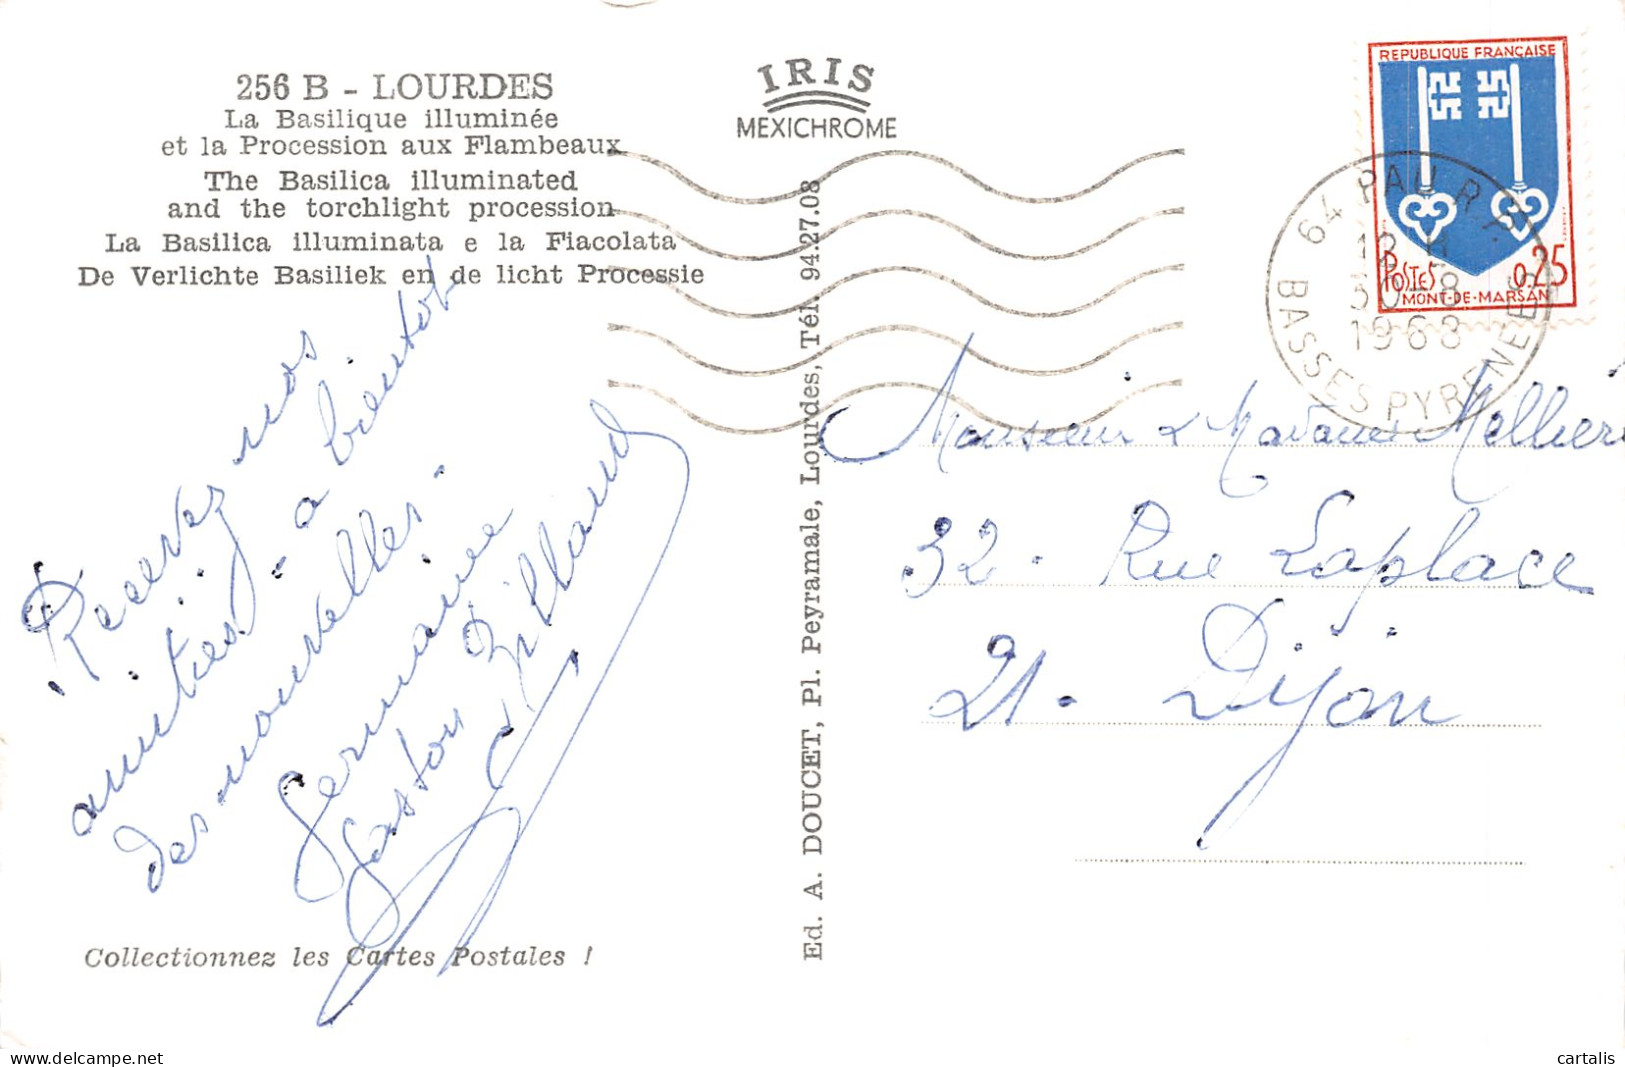 256 B - LOURDES
La Basilique illuminée
et la Procession aux Flambeaux
The Basilica illuminated
and the torchlight procession
La Basilica illuminata e la Fiacolata
De Verlichte Basiliek en de licht Processie
IRIS
MEXICHROME
REPUBLIQUE FRANÇAISE
POSTES 0,25
MONT-DE-MARSAN
64 PAU R.P.
30-8
1968
BASSES PYRENEES
Recevez nos
amitiés - à bientôt
des nouvelles.
Germaine
Gaston Billaud
Collectionnez les Cartes Postales !
Ed. A. DOUCET, Pl. Peyramale, Lourdes, Tél. 94.27.08
Monsieur & Madame
32 - Rue Laplace
21 - Dijon
My ref
cartalis